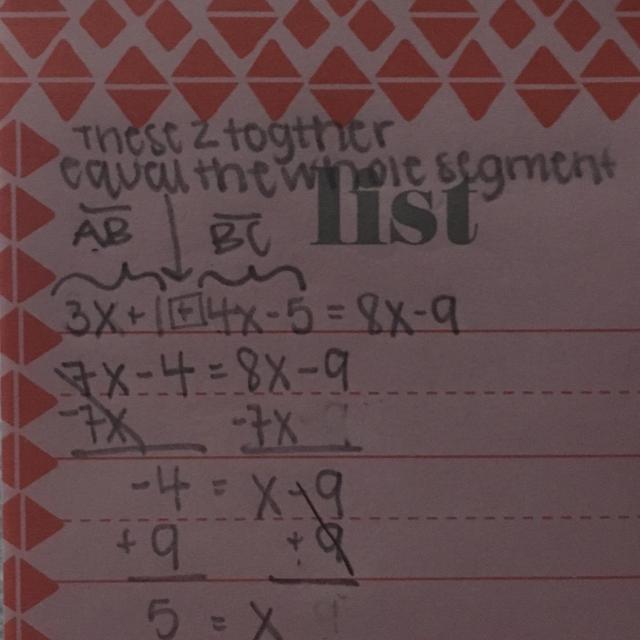 These 2 togther
equal the whole segment
list
AB BC
3x+1+4x-5=8x-9
7x-4=8x-9
-7x -7x
-4=x-9
+9 +9
5=x